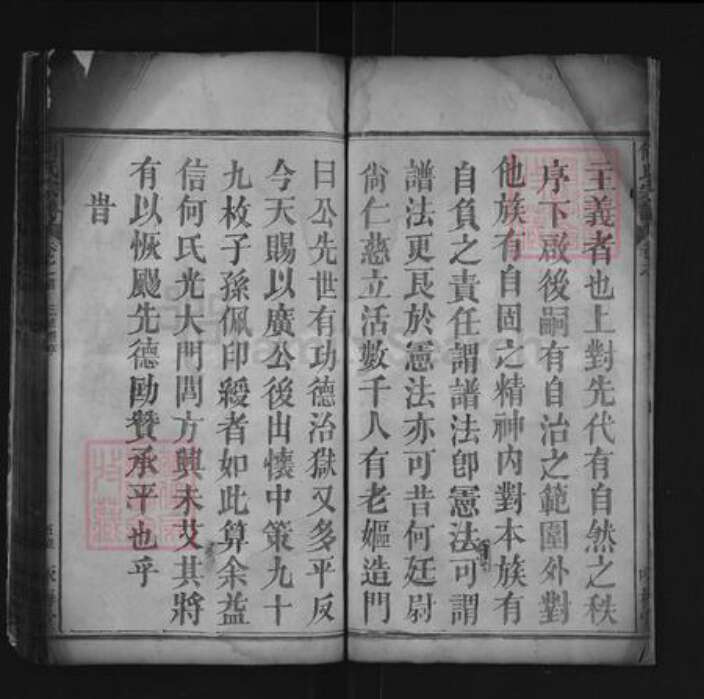 主義者也上對先代有自然之秩
序下啟後嗣有自治之範圍外對
他族有自固之精神內對本族有
自負之責任謂譜法卽憲法可謂
譜法更良於憲法亦可昔何廷尉
尚仁慈立活數千人有老嫗造門
曰公先世有功德治獄又多平反
今天賜以廣公後出懷中策九十
九枚子孫佩印綬者如此算余益
信何氏光大門閭方興未艾其將
有以恢颺先德勵贊承平也乎
旹